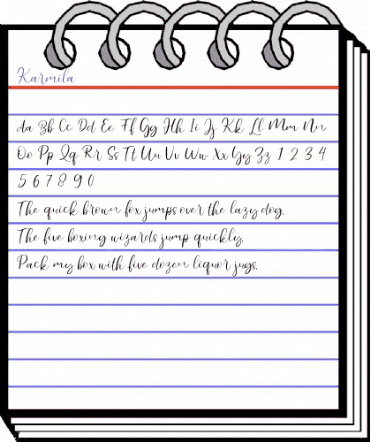 Karmila
da Bb Cc Dd Ee Ff Gg Hh Ii Jj Kk Ll Mm Nn
Oo Pp Qq Rr Ss Tt Uu Vv Ww Xx Yy Zz 1 2 3 4
5 6 7 8 9 0
The quick brown fox jumps over the lazy dog.
The five boxing wizards jump quickly.
Pack my box with five dozen liquor jugs.